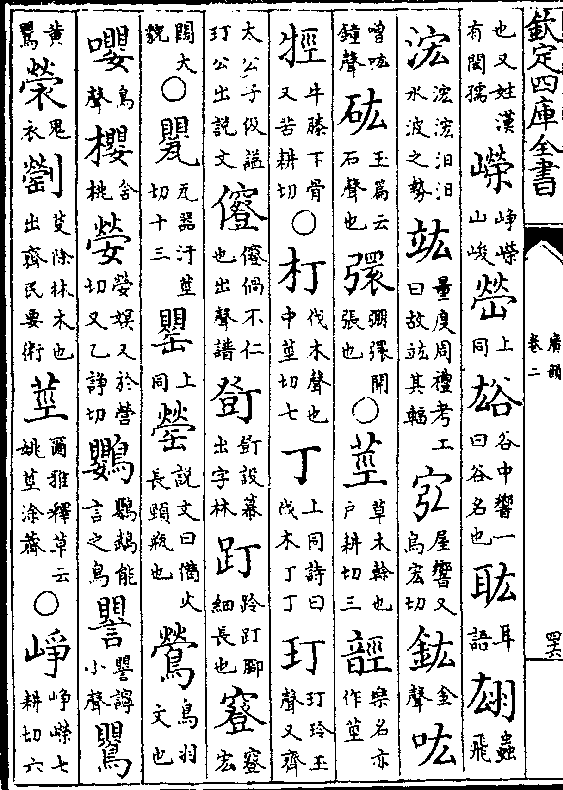 欽定四庫全書
廣韻
卷二
四六
也又姓漢有閎孺 嶸崢嶸山峻 㟦上同 谹谷中響一曰谷名也 耾耳語 䎕蟲飛
浤浤浤汩汩水波之勢 竑量度周禮考工曰故竑其輻 㝁屋響又烏宏切 鈜金聲 吰
噌吰鐘聲 砿玉篇云石聲也 彋弸彋開張也 〇莖草木榦也户耕切三 䪫樂名亦作莖
牼牛膝下骨又苦耕切 〇朾伐木聲也中莖切七 丁上同詩曰伐木丁丁 玎玎玲玉聲又齊
太公子伋諡玎公出說文 㒓㒓偶不仁也出聲譜 䔲䔲設幕出字林 䟓跉䟓脚細長也 㝎㝎宏
闊大貌 〇甖瓦器汙莖切十三 罌上同 罃說文曰備火長頸瓶也 鶯鳥羽文也
嚶鳥聲 櫻含桃 嫈嫈娱又於營切又乙諍切 鸚鸚鵡能言之鳥 譻譻諻小聲 鷪
黃鸎 褮鬼衣 㔃芟除林木也出齊民要術 莖爾雅釋草云姚莖涂薺 〇崢崢嶸七耕切六